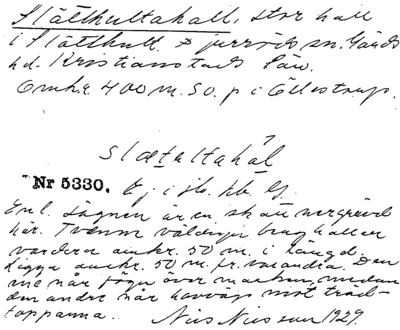 Slättkultakall. stor hall
i Slättkult. Djurröds sn. Gärds
hd. Kristianstads län.
Omkr. 400 m. SO. p i Cöllestrup.
slætaltahal
Nr 5330. Ej i jb. hb. Ej.
Enl. sägnen är en skatt nergrävd
här. Tvenne väldiga berghällar
vardera omkr. 50 m. i längd. Den
ligga omkr. 50 m. fr. varandra. Den
ene når föga över marken, medan
den andre når
mot träd-
topparna.. Nils Nilsson 1929.